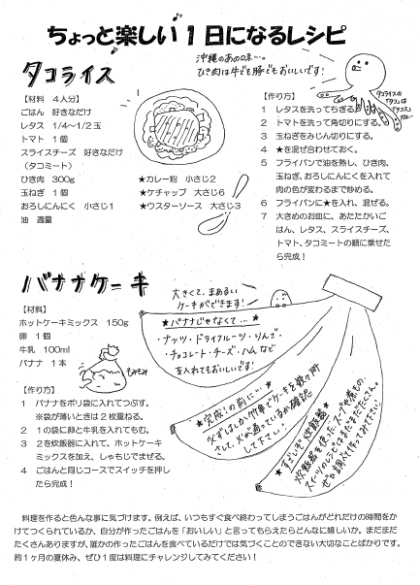 ちょっと楽しい1日になるレシピ
タコライス
沖縄のあの味…。
ひき肉は牛でも豚でもおいしいです!
タコライスの
"タコ"は
【材料 4人分】
ごはん 好きなだけ
レタス 1/4~1/2玉
トマト 1個
スライスチーズ 好きなだけ
(タコミート)
ひき肉 300g
玉ねぎ 1個
おろしにんにく 小さじ1
油 適量
★カレー粉 小さじ2
★ケチャップ 大さじ6
★ウスターソース 大さじ3
【作り方】
1 レタスを洗ってちぎる。
2 トマトを洗って角切りにする。
3 玉ねぎをみじん切りにする。
4 ★を混ぜ合わせておく。
5 フライパンで油を熱し、ひき肉、
玉ねぎ、おろしにんにくを入れて
肉の色が変わるまで炒める。
6 フライパンに★を入れ、混ぜる。
7 大きめのお皿に、あたたかいご
はん、レタス、スライスチーズ、
トマト、タコミートの順に乗せた
ら完成!
バナナケーキ
大きくて、まあるい
ケーキができます!
【材料】
ホットケーキミックス 150g
卵 1個
牛乳 100ml
バナナ 1本
もみもみ
【作り方】
1 バナナをポリ袋に入れてつぶす。
※袋が薄いときは2枚重ねる。
2 1の袋に卵と牛乳を入れてもむ。
3 2を炊飯器に入れて、ホットケーキ
ミックスを加え、しゃもじでまぜる。
4 ごはんと同じコースでスイッチを押し
たら完成!
★バナナじゃなくて…★
・ナッツ・ドライフルーツ・りんご・
・チョコレート・チーズ・ハム など
を入れてもおいしいです!
★完成!の前に…★
必ずはしか竹串でケーキを数ヶ所
さして、火が通っているか確認
して下さい!
★すごいぞ炊飯器★
炊飯器を使ったスープや煮もの
スイーツのレシピはまだまだたくさん。
ぜひ調べて作ってみて下さい!
料理を作ると色んな事に気づけます。例えば、いつもすぐ食べ終わってしまうごはんがどれだけの時間をか
けてつくられているか、自分が作ったごはんを「おいしい」と言ってもらえたらどんなに嬉しいか。まだまだ
たくさんありますが、誰かの作ったごはんを食べているだけでは気づくことのできない大切なことばかりです。
約1ヶ月の夏休み、ぜひ1度は料理にチャレンジしてみてください!